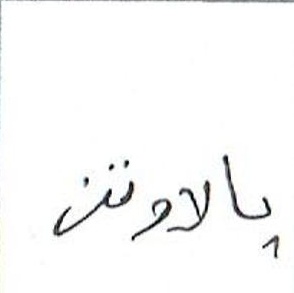 پالاوتن